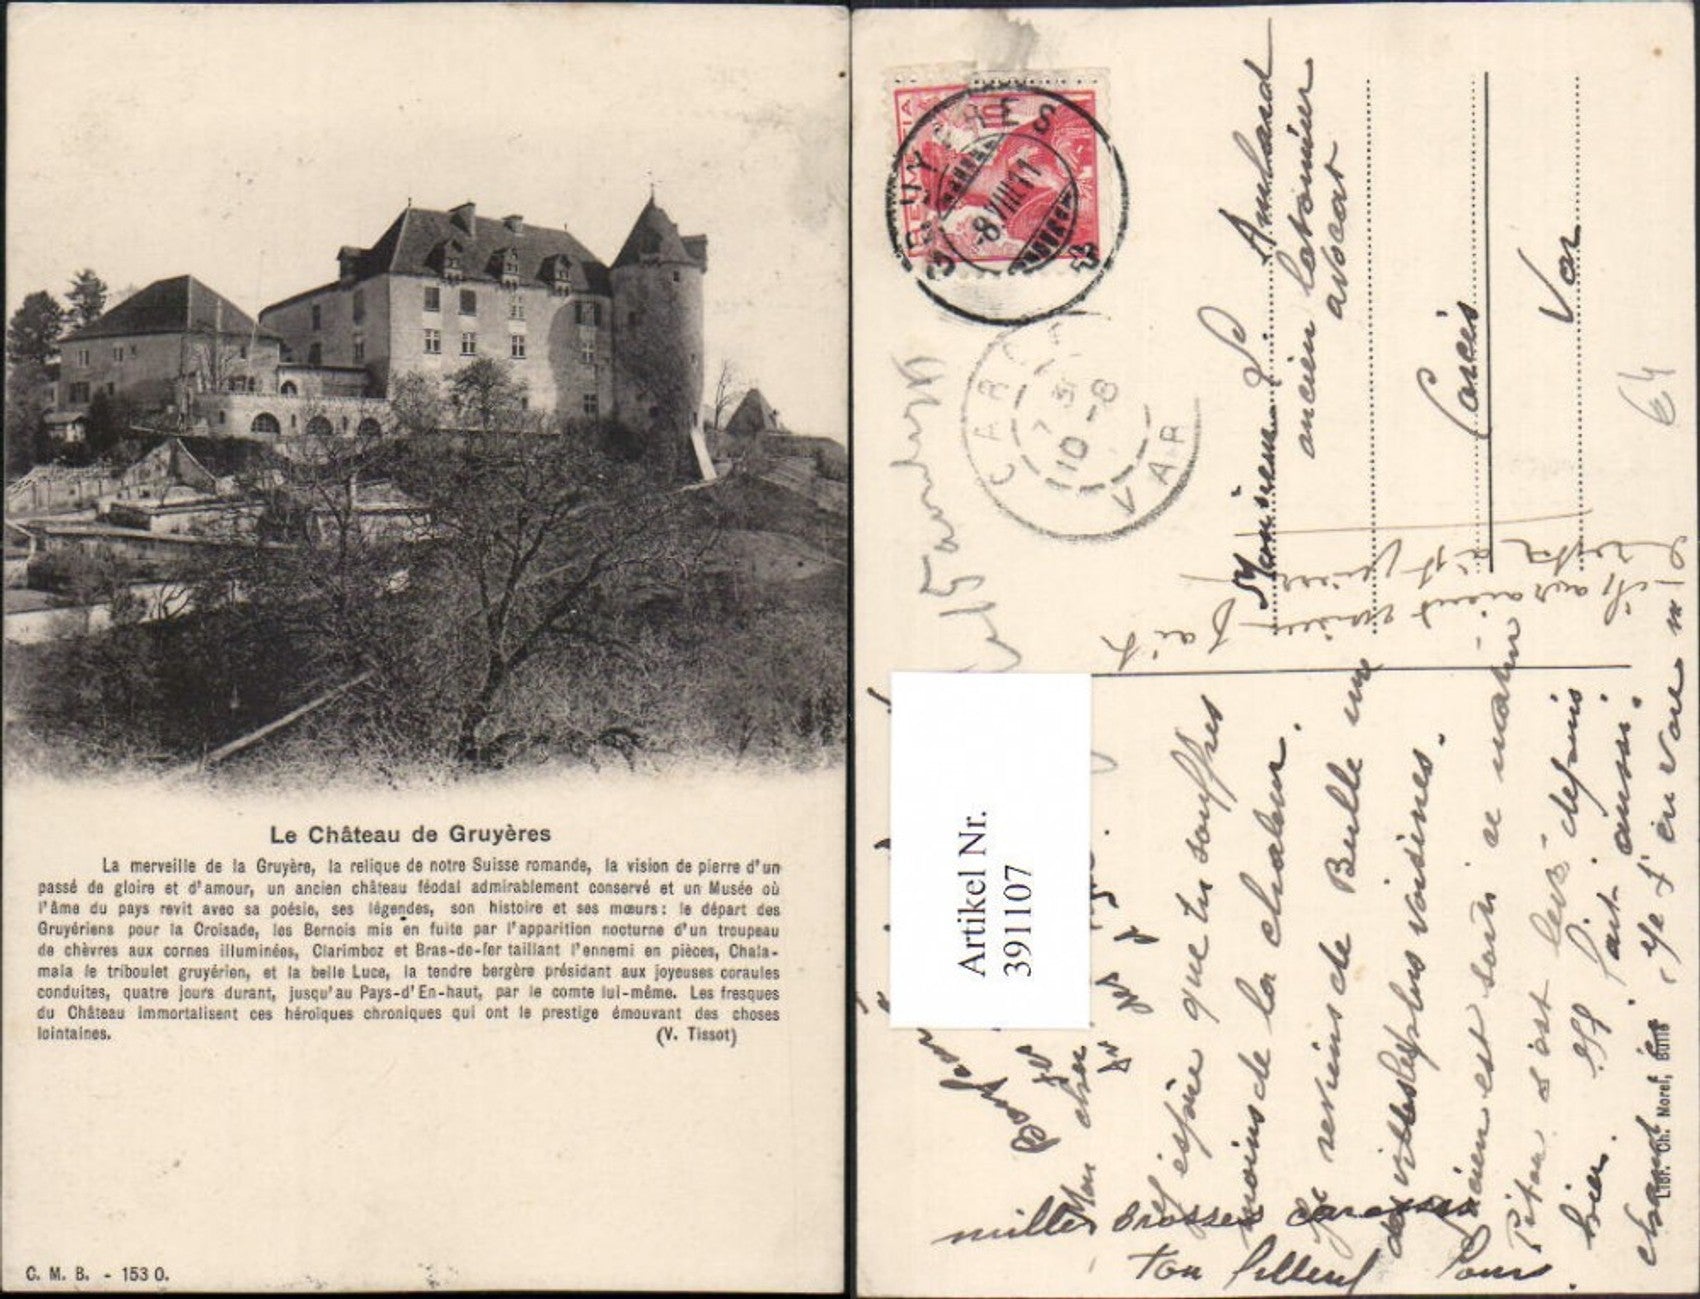 Le Château de Gruyères
La merveille de la Gruyère, la relique de notre Suisse romande, la vision de pierre d'un
passé de gloire et d'amour, un ancien château féodal admirablement conservé et un Musée où
l'âme du pays revit avec sa poésie, ses légendes, son histoire et ses mœurs: le départ des
Gruyériens pour la Croisade, les Bernois mis en fuite par l'apparition nocturne d'un troupeau
de chèvres aux cornes illuminées, Clarimboz et Bras-de-fer taillant l'ennemi en pièces, Chala-
mala le triboulet gruyérien, et la belle Luce, la tendre bergère présidant aux joyeuses coraules
conduites, quatre jours durant, jusqu'au Pays-d'En-haut, par le comte lui-même. Les fresques
du Château immortalisent ces héroïques chroniques qui ont le prestige émouvant des choses
lointaines.
(V. Tissot)
C. M. B. - 153 O.
HELVETIA
10
GRUYÈRES
-8.VIII.11
CARCÈS
7 30
10 -8
VAR
Monsieur
ancien
avocat
Carcès
Var
64
Artikel Nr.
391107
Mon cher
J'espère que tu souffres
moins de la chaleur.
Je reviens de Bulle une
des villes les plus voisines.
est sorti ce matin
s'est levé depuis
hier. Il fait aussi
chaud ici
mille grosses caresses
Ton filleul Louis
Libr. Ch. Morel, Bulle